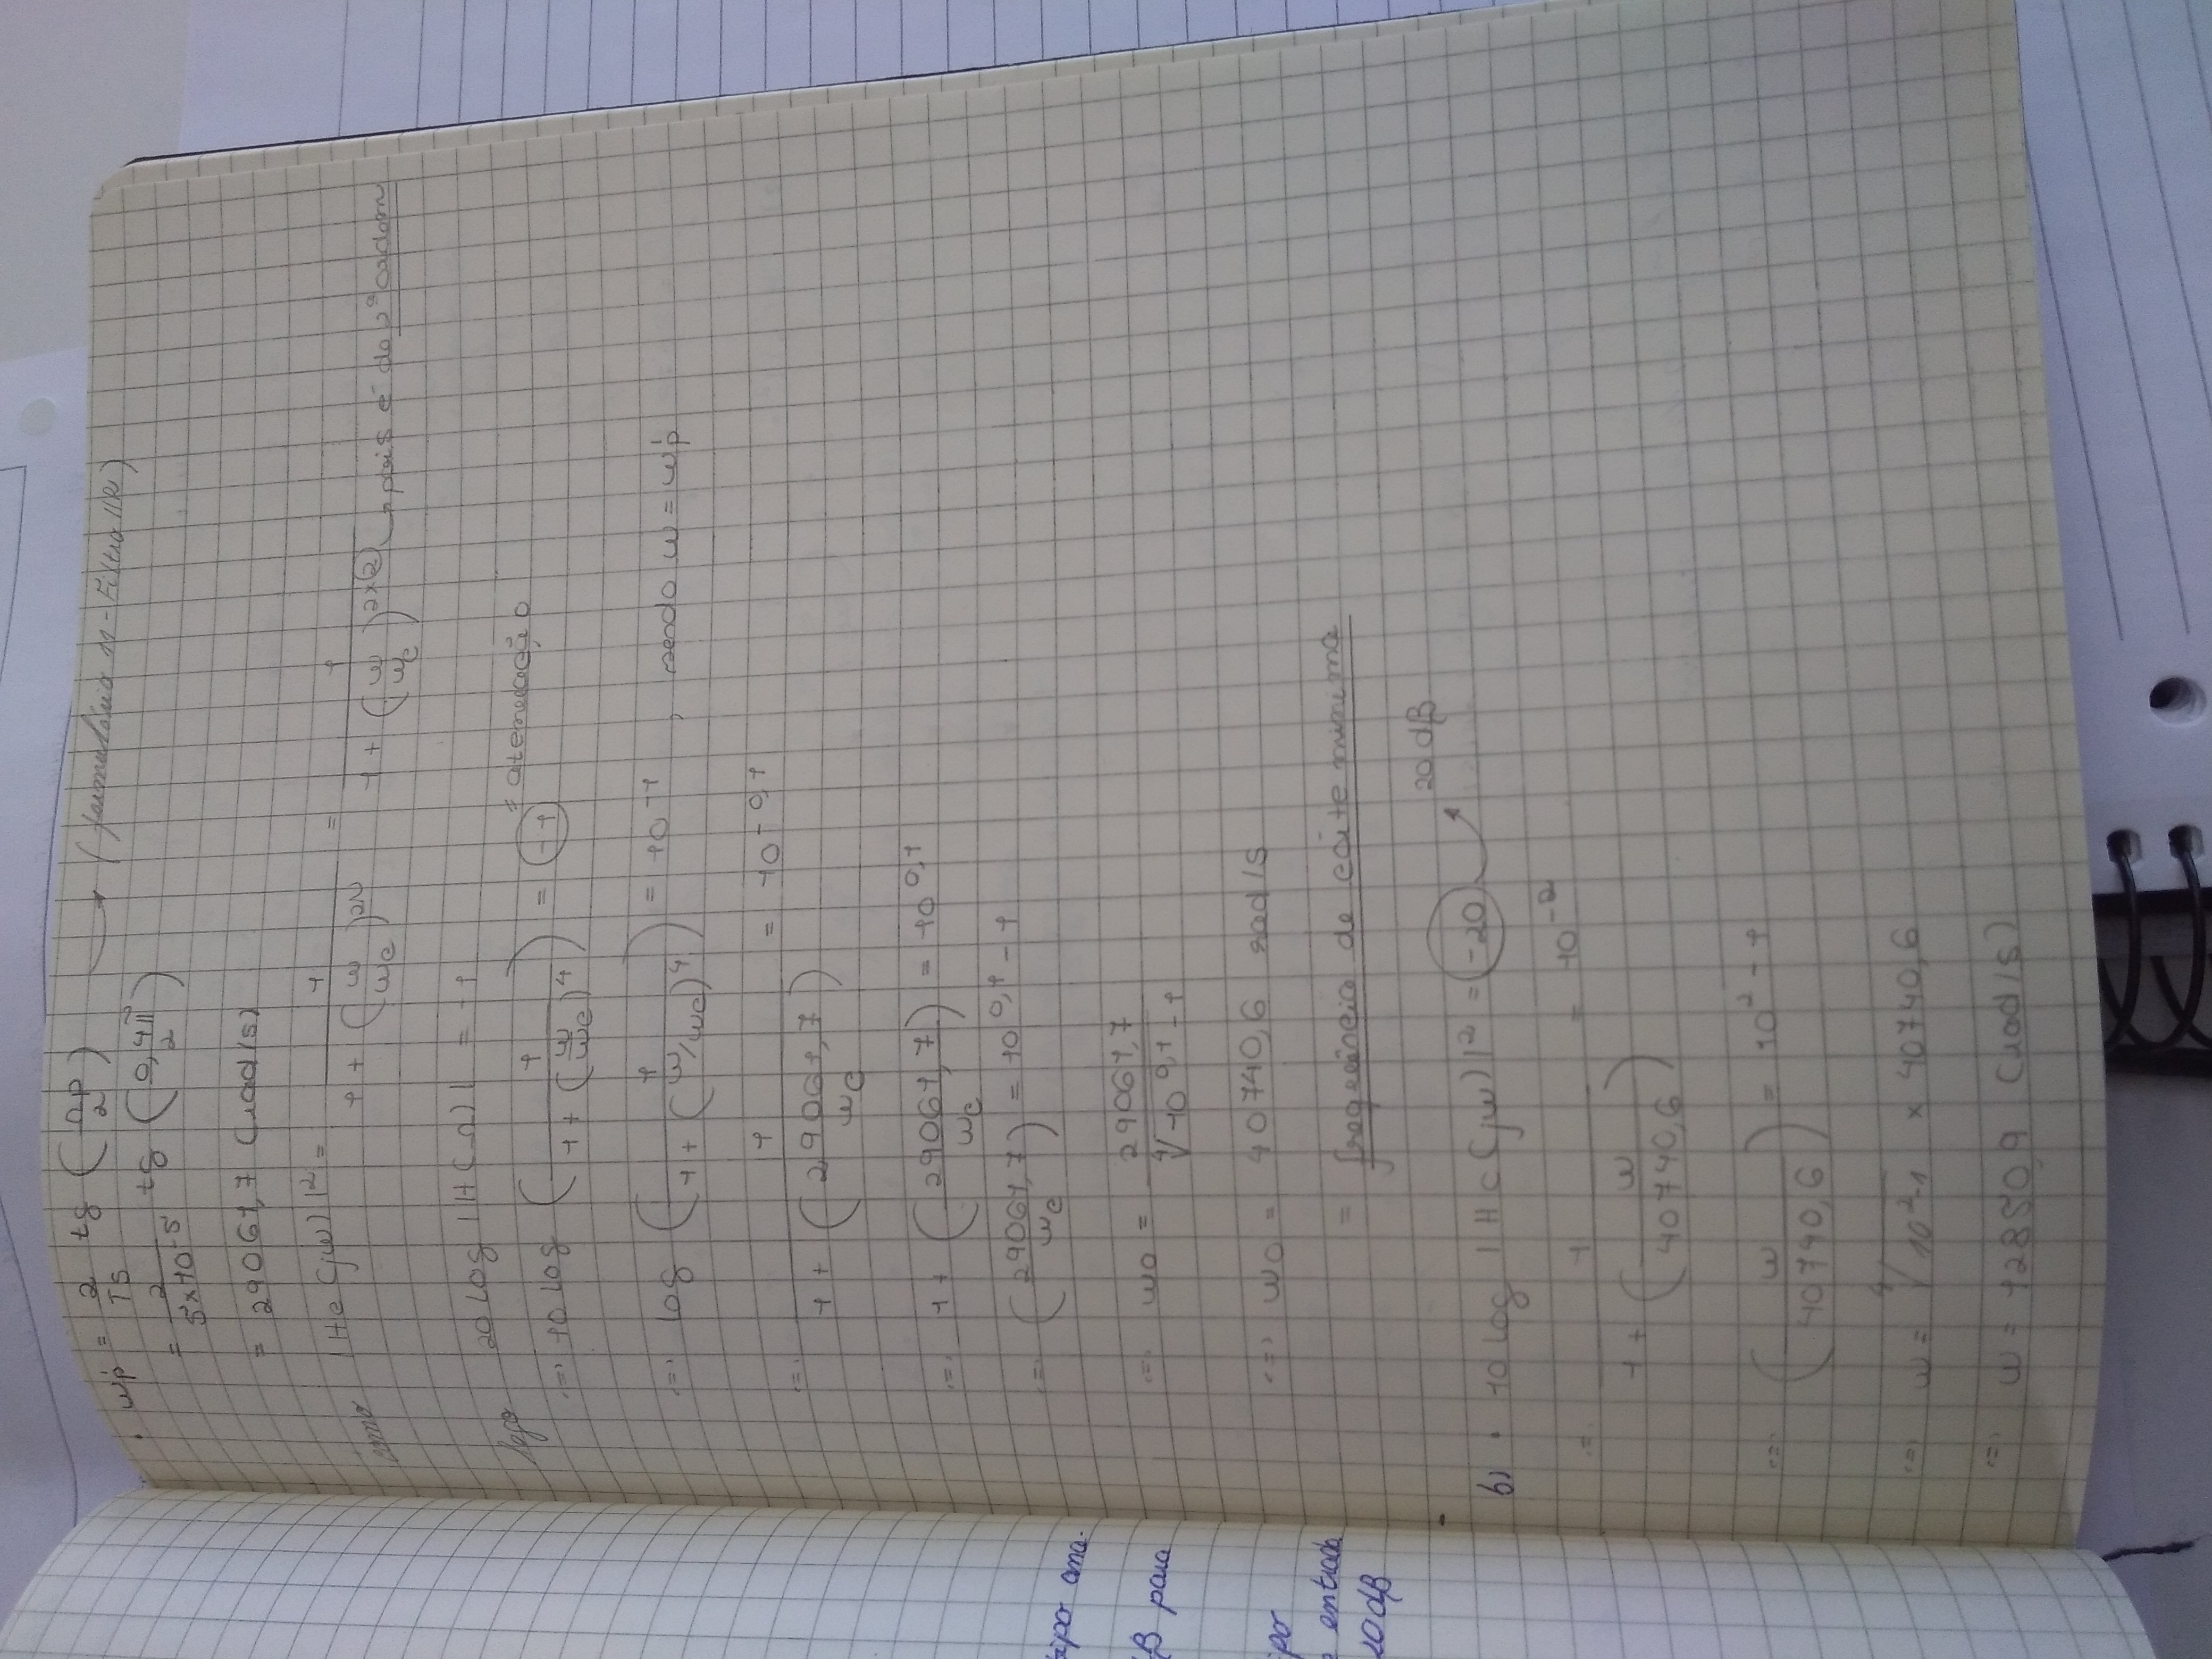 • wp' = 2/Ts tg (Ωp/2) → (formulário 11 - Filtro IIR)
= 2/(5×10^-5) tg (0,4π/2)
= 29061,7 (rad/s)
como |Hc(jw)|² = 1/(1 + (w/wc)^2N) = 1/(1 + (w/wc)^2×2) → pois é de 2ª ordem
logo 20 log |H(Ω)| = -1
<=> 10 log (1/(1 + (w/wc)^4)) = -1 = atenuação
<=> log (1/(1 + (w/wc)^4)) = 10^-1 , sendo w = wp'
<=> 1/(1 + (29061,7/wc)) = 10^-0,1
<=> 1 + (29061,7/wc) = 10^0,1
<=> (29061,7/wc) = 10^0,1 - 1
<=> wc = 29061,7/⁴√(10^0,1 - 1)
<=> wc = 40740,6 rad/s
= frequência de corte minima
tipo ana-
B para
ipo
entrada
20dB
b) • 10 log |Hc(jw)|² = -20 → 20 dB
<=> 1/(1 + (w/40740,6)) = 10^-2
<=> (w/40740,6) = 10² - 1
<=> w = ⁴√(10²-1) × 40740,6
<=> w = 12850,9 (rad/s)